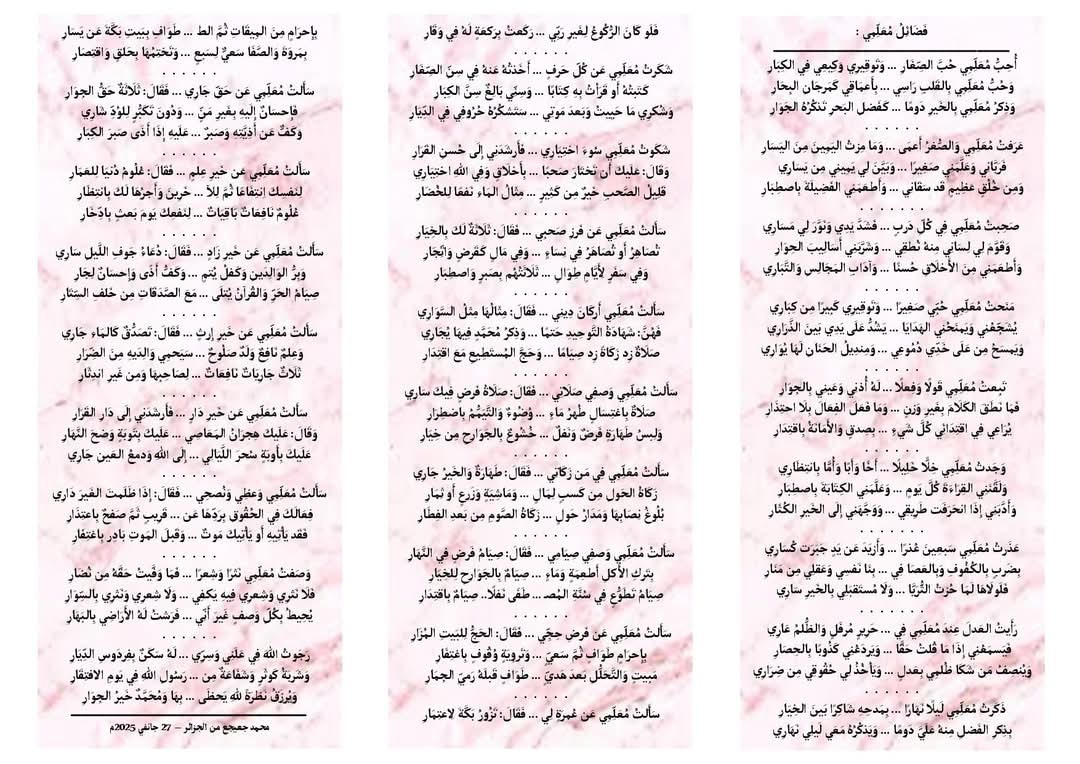 فَضَائِلُ مُعَلِّمِي :
أُحِبُّ مُعَلِّمِي حُبَّ الصِّغَارِ ... وَتَوقِيرِي وَكِيعِي فِي الكِبَارِ
وَحُبُّ مُعَلِّمِي بِالقَلبِ رَاسِي ... بِأَعمَاقِي كَمَرجَانِ البِحَارِ
وَذِكرُ مُعَلِّمِي بِالخَيرِ دَومًا ... كَفَضلِ البَحرِ تَذكُرُهُ الجَوَارِ
. . . . . .
عَرَفتُ مُعَلِّمِي وَالصُّغرُ أَعمَى ... وَمَا مِزتُ اليَمِينَ مِنَ اليَسَارِ
فَرَبَّانِي وَعَلَّمَنِي صَغِيرًا ... وَبَيَّنَ لِي يَمِينِي مِن يَسَارِي
وَمِن خُلُقٍ عَظِيمٍ قَد سَقَانِي ... وَأَطعَمَنِي الفَضِيلَةَ بِاصطِبَارِ
. . . . . .
صَحِبتُ مُعَلِّمِي فِي كُلِّ دَربٍ ... فَشَدَّ يَدِي وَنَوَّرَ لِي مَسَارِي
وَقَوَّمَ لِي لِسَانِي مِنهُ نُطقِي ... وَشَرَّبَنِي أَسَالِيبَ الحِوَارِ
وَأَطعَمَنِي مِنَ الأَخلَاقِ حُسنًا ... وَآدَابَ المَجَالِسِ وَالتَّبَارِي
. . . . . .
مَنَحتُ مُعَلِّمِي حُبِّي صَغِيرًا ... وَتَوقِيرِي كَبِيرًا مِن كِبَارِي
يُشَجِّعُنِي وَيَمنَحُنِي الهَدَايَا ... يَشُدُّ عَلَى يَدِي بَينَ الذَّرَارِي
وَيَمسَحُ مِن عَلَى خَدِّي دُمُوعِي ... وَمِندِيلُ الحَنَانِ لَهَا يُوَارِي
. . . . . .
تَبِعتُ مُعَلِّمِي قَولًا وَفِعلًا ... لَهُ أُذنِي وَعَينِي بِالجِوَارِ
فَمَا نَطَقَ الكَلَامَ بِغَيرِ وَزنٍ ... وَمَا فَعَلَ الفِعَالَ بِلَا احتِذَارِ
يُرَاعِي فِي اقتِدَائِي كُلَّ شَيءٍ ... بِصِدقٍ وَالأَمَانَةُ بِاقتِدَارِ
. . . . . .
وَجَدتُ مُعَلِّمِي خِلًّا خَلِيلًا ... أَخًا وَأَبًا وَأُمًّا بِانتِظَارِي
وَلَقَّنَنِي القِرَاءَةَ كُلَّ يَومٍ ... وَعَلَّمَنِي الكِتَابَةَ بِاصطِبَارِ
وَأَدَّبَنِي إِذَا انحَرَفَت طَرِيقِي ... وَوَجَّهَنِي إِلَى الخَيرِ الكُثَارِ
. . . . . .
عَذَرتُ مُعَلِّمِي سَبعِينَ عُذرًا ... وَأَزيَدَ عَن يَدٍ جَبَرَت كُسَارِي
بِضَربٍ بِالكُفُوفِ وَبِالعَصَا فِي ... بِنَا نَفسِي وَعَقلِي مِن مَنَارِ
فَلَولَاهَا لَمَا حُزتُ الثُّرَيَّا ... وَلَا مُستَقبَلِي بِالخَيرِ سَارِي
. . . . . .
رَأَيتُ العَدلَ عِندَ مُعَلِّمِي فِي ... حَرِيرٍ مُرفَلٍ وَالظُّلمُ عَارِي
فَيَسمَعُنِي إِذَا مَا قُلتُ حَقًّا ... وَيَردَعُنِي كَذُوبًا بِالحِصَارِ
وَيُنصِفُ مَن شَكَا ظُلمِي بِعَدلٍ ... وَيَأخُذُ لِي حُقُوقِي مِن ضِرَارِي
. . . . . .
ذَكَرتُ مُعَلِّمِي لَيلًا نَهَارًا ... بِمَدحِهِ شَاكِرًا بَينَ الخِيَارِ
بِذِكرِ الفَضلِ مِنهُ عَلَيَّ دَومًا ... وَيَذكُرُهُ مَعِي لَيلِي نَهَارِي
فَلَو كَانَ الرُّكُوعُ لِغَيرِ رَبِّي ... رَكَعتُ بِرَكعَةٍ لَهُ فِي وَقَارِ
. . . . . .
شَكَرتُ مُعَلِّمِي عَن كُلِّ حَرفٍ ... أَخَذتُهُ عَنهُ فِي سِنِّ الصِّغَارِ
كَتَبتُهُ أَو قَرَأتُ بِهِ كِتَابًا ... وَسِنِّي بَالِغٌ سِنَّ الكِبَارِ
وَشُكرِي مَا حَيِيتُ وَبَعدَ مَوتِي ... سَتَشكُرُهُ حُرُوفِي فِي الدِّيَارِ
. . . . . .
شَكَوتُ مُعَلِّمِي سُوءَ اختِيَارِي ... فَأَرشَدَنِي إِلَى حُسنِ القَرَارِ
وَقَالَ: عَلَيكَ أَن تَختَارَ صَحبًا ... بِأَخلَاقٍ وَفِي اللهِ اختِيَارِي
قَلِيلُ الصَّحبِ خَيرٌ مِن كَثِيرٍ ... مِثَالُ المَاءِ نَفعًا لِلخُضَارِ
. . . . . .
سَأَلتُ مُعَلِّمِي عَن فَرزِ صَحبِي ... فَقَالَ: ثَلَاثَةٌ لَكَ بِالخِيَارِ
تُصَاهِرُ أَو تُصَاهَرُ فِي نِسَاءٍ ... وَفِي مَالٍ كَقَرضٍ وَاتِّجَارِ
وَفِي سَفَرٍ لِأَيَّامٍ طِوَالٍ ... ثَلَاثَتُهُم بِصَبرٍ وَاصطِبَارِ
. . . . . .
سَأَلتُ مُعَلِّمِي أَركَانَ دِينِي ... فَقَالَ: مِثَالُهَا مِثلُ السَّوَارِي
فَهُنَّ: شَهَادَةُ التَّوحِيدِ حَتمًا ... وَذِكرُ مُحَمَّدٍ فِيهَا يُجَارِي
صَلَاةٌ زِد زَكَاةً زِد صِيَامًا ... وَحَجَّ المُستَطِيعِ مَعَ اقتِدَارِ
. . . . . .
سَأَلتُ مُعَلِّمِي وَصفِي صَلَاتِي ... فَقَالَ: صَلَاةُ فَرضٍ فِيكَ سَارِي
صَلَاةٌ بِاغتِسَالٍ طُهرُ مَاءٍ ... وَضُوءٌ وَالتَّيَمُّمُ بِاضطِرَارِ
وَلِبسُ طَهَارَةٍ فَرضٌ وَنَفلٌ ... خُشُوعٌ بِالجَوَارِحِ مِن خِيَارِ
. . . . . .
سَأَلتُ مُعَلِّمِي فِي مَن زَكَاتِي ... فَقَالَ: طَهَارَةٌ وَالخَيرُ جَارِي
زَكَاةُ الحَولِ مِن كَسبٍ لِمَالٍ ... وَمَاشِيَةٍ وَزَرعٍ أَو ثِمَارِ
بُلُوغُ نِصَابِهَا وَمَدَارُ حَولٍ ... زَكَاةُ الصَّومِ مِن بَعدِ الفِطَارِ
. . . . . .
سَأَلتُ مُعَلِّمِي وَصفِي صِيَامِي ... فَقَالَ: صِيَامُ فَرضٍ فِي النَّهَارِ
بِتَركِ الأَكلِ أَطعِمَةٍ وَمَاءٍ ... صِيَامٌ بِالجَوَارِحِ لِلخِيَارِ
صِيَامُ تَطَوُّعٍ فِي سُنَّةِ المُصـ ... ـطَفَى نَفلًا.. صِيَامٌ بِاقتِدَارِ
. . . . . .
سَأَلتُ مُعَلِّمِي عَن فَرضِ حِجِّي ... فَقَالَ: الحَجُّ لِلبَيتِ المُزَارِ
بِإِحرَامٍ طَوَافٍ ثُمَّ سَعيٍ ... وَتَروِيَةٍ وُقُوفٍ بِاغتِفَارِ
مَبِيتٍ وَالتَّحَلُّلِ بَعدَ هَديٍ ... طَوَافٍ قَبلَهُ رَميُ الجِمَارِ
. . . . . .
سَأَلتُ مُعَلِّمِي عَن عُمرَةٍ لِي ... فَقَالَ: تَزُورُ بَكَّةَ لِاعتِمَارِ
بِإِحرَامٍ مِنَ المِيقَاتِ ثُمَّ الط ... طَوَافِ بِبَيتِ بَكَّةَ عَن يَسَارِ
بِمَروَةَ وَالصَّفَا سَعيٌ لِسَبعٍ ... وَتَختِمُهَا بِحَلقٍ وَاقتِصَارِ
. . . . . .
سَأَلتُ مُعَلِّمِي عَن حَقِّ جَارِي ... فَقَالَ: ثَلَاثَةٌ حَقُّ الجِوَارِ
فَإِحسَانٌ إِلَيهِ بِغَيرِ مَنٍّ ... وَدُونَ تَكَبُّرٍ لِلوُدِّ شَارِي
وَكَفٌّ عَن أَذِيَّتِهِ وَصَبرٌ ... عَلَيهِ إِذَا أَذَى صَبرَ الكِبَارِ
. . . . . .
سَأَلتُ مُعَلِّمِي عَن خَيرِ عِلمٍ ... فَقَالَ: عُلُومُ دُنيَا لِلعَمَارِ
لِنَفسِكَ اِنتِفَاعًا ثُمَّ لِلآ ... خَرِينَ وَأَجرُهَا لَكَ بِانتِظَارِ
عُلُومٌ نَافِعَاتٌ بَاقِيَاتٌ ... لِنَفعِكَ يَومَ بَعثٍ بِادِّخَارِ
. . . . . .
سَأَلتُ مُعَلِّمِي عَن خَيرِ زَادٍ ... فَقَالَ: دُعَاءُ جَوفِ اللَّيلِ سَارِي
وَبِرُّ الوَالِدَينِ وَكَفلُ يُتمٍ ... وَكَفُّ أَذًى وَإِحسَانٌ لِجَارِ
صِيَامُ الحَرِّ وَالقُرآنُ يُتلَى ... مَعَ الصَّدَقَاتِ مِن خَلفِ السِّتَارِ
. . . . . .
سَأَلتُ مُعَلِّمِي عَن خَيرِ إِرثٍ ... فَقَالَ: تَصَدُّقٌ كَالمَاءِ جَارِي
وَعِلمٌ نَافِعٌ وَلَدٌ صَلُوحٌ ... سَيَحمِي وَالِدَيهِ مِنَ الضِّرَارِ
ثَلَاثٌ جَارِيَاتٌ نَافِعَاتٌ ... لِصَاحِبِهَا وَمِن غَيرِ اندِثَارِ
. . . . . .
سَأَلتُ مُعَلِّمِي عَن خَيرِ دَارٍ ... فَأَرشَدَنِي إِلَى دَارِ القَرَارِ
وَقَالَ: عَلَيكَ هِجرَانُ المَعَاصِي ... عَلَيكَ بِتَوبَةٍ وَضَحَ النَّهَارِ
عَلَيكَ بِأَوبَةٍ سَحَرَ اللَّيَالِي ... إِلَى اللهِ وَدَمعُ العَينِ جَارِي
. . . . . .
سَأَلتُ مُعَلِّمِي وَعظِي وَنُصحِي ... فَقَالَ: إِذَا ظَلَمتَ الغَيرَ دَارِي
فِعَالَكَ فِي الحُقُوقِ بِرَدِّهَا عَن ... قَرِيبٍ ثَمَّ صَفحٌ بِاعتِذَارِ
فَقَد يَأتِيهِ أَو يَأتِيكَ مَوتٌ ... وَقَبلَ المَوتِ بَادِر بِاغتِفَارِ
. . . . . .
وَصَفتُ مُعَلِّمِي نَثرًا وَشِعرًا ... فَمَا وَفَّيتُ حَقَّهُ مِن نُضَارِ
فَلَا نَثرِي وَشِعرِي فِيهِ يَكفِي ... وَلَا شِعرِي وَنَثرِي بِالسِّوَارِ
يُحِيطُ بِكُلِّ وَصفٍ غَيرَ أَنِّي ... فَرَشتُ لَهُ الأَرَاضِي بِالبَهَارِ
. . . . . .
رَجَوتُ اللهَ فِي عَلَنِي وَسِرِّي ... لَهُ سَكَنٌ بِفِردَوسِ الدِّيَارِ
وَشَربَةُ كَوثَرٍ وَشَفَاعَةٌ مِن ... رَسُولِ اللهِ فِي يَومِ الافتِقَارِ
وَيُرزَقُ نَظرَةً للهِ يَحظَى ... بِهَا وَمُحَمَّدٌ خَيرُ الجِوَارِ
محمد جعيجع من الجزائر – 27 جانفي 2025م